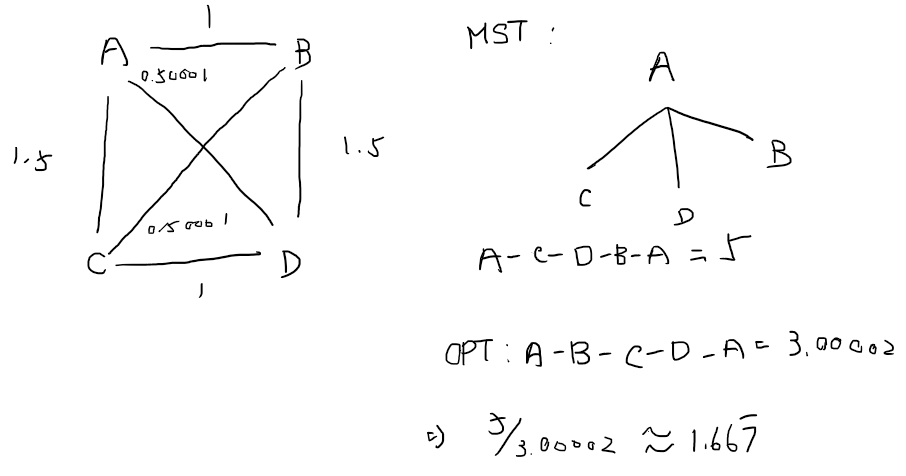 1
A B
0.50001
1.5 1.5
0.50001
C D
1
MST :
A
B
C
D
A-C-D-B-A = 5
OPT : A-B-C-D-A = 3.00002
=) 5/3.00002 ≈ 1.667